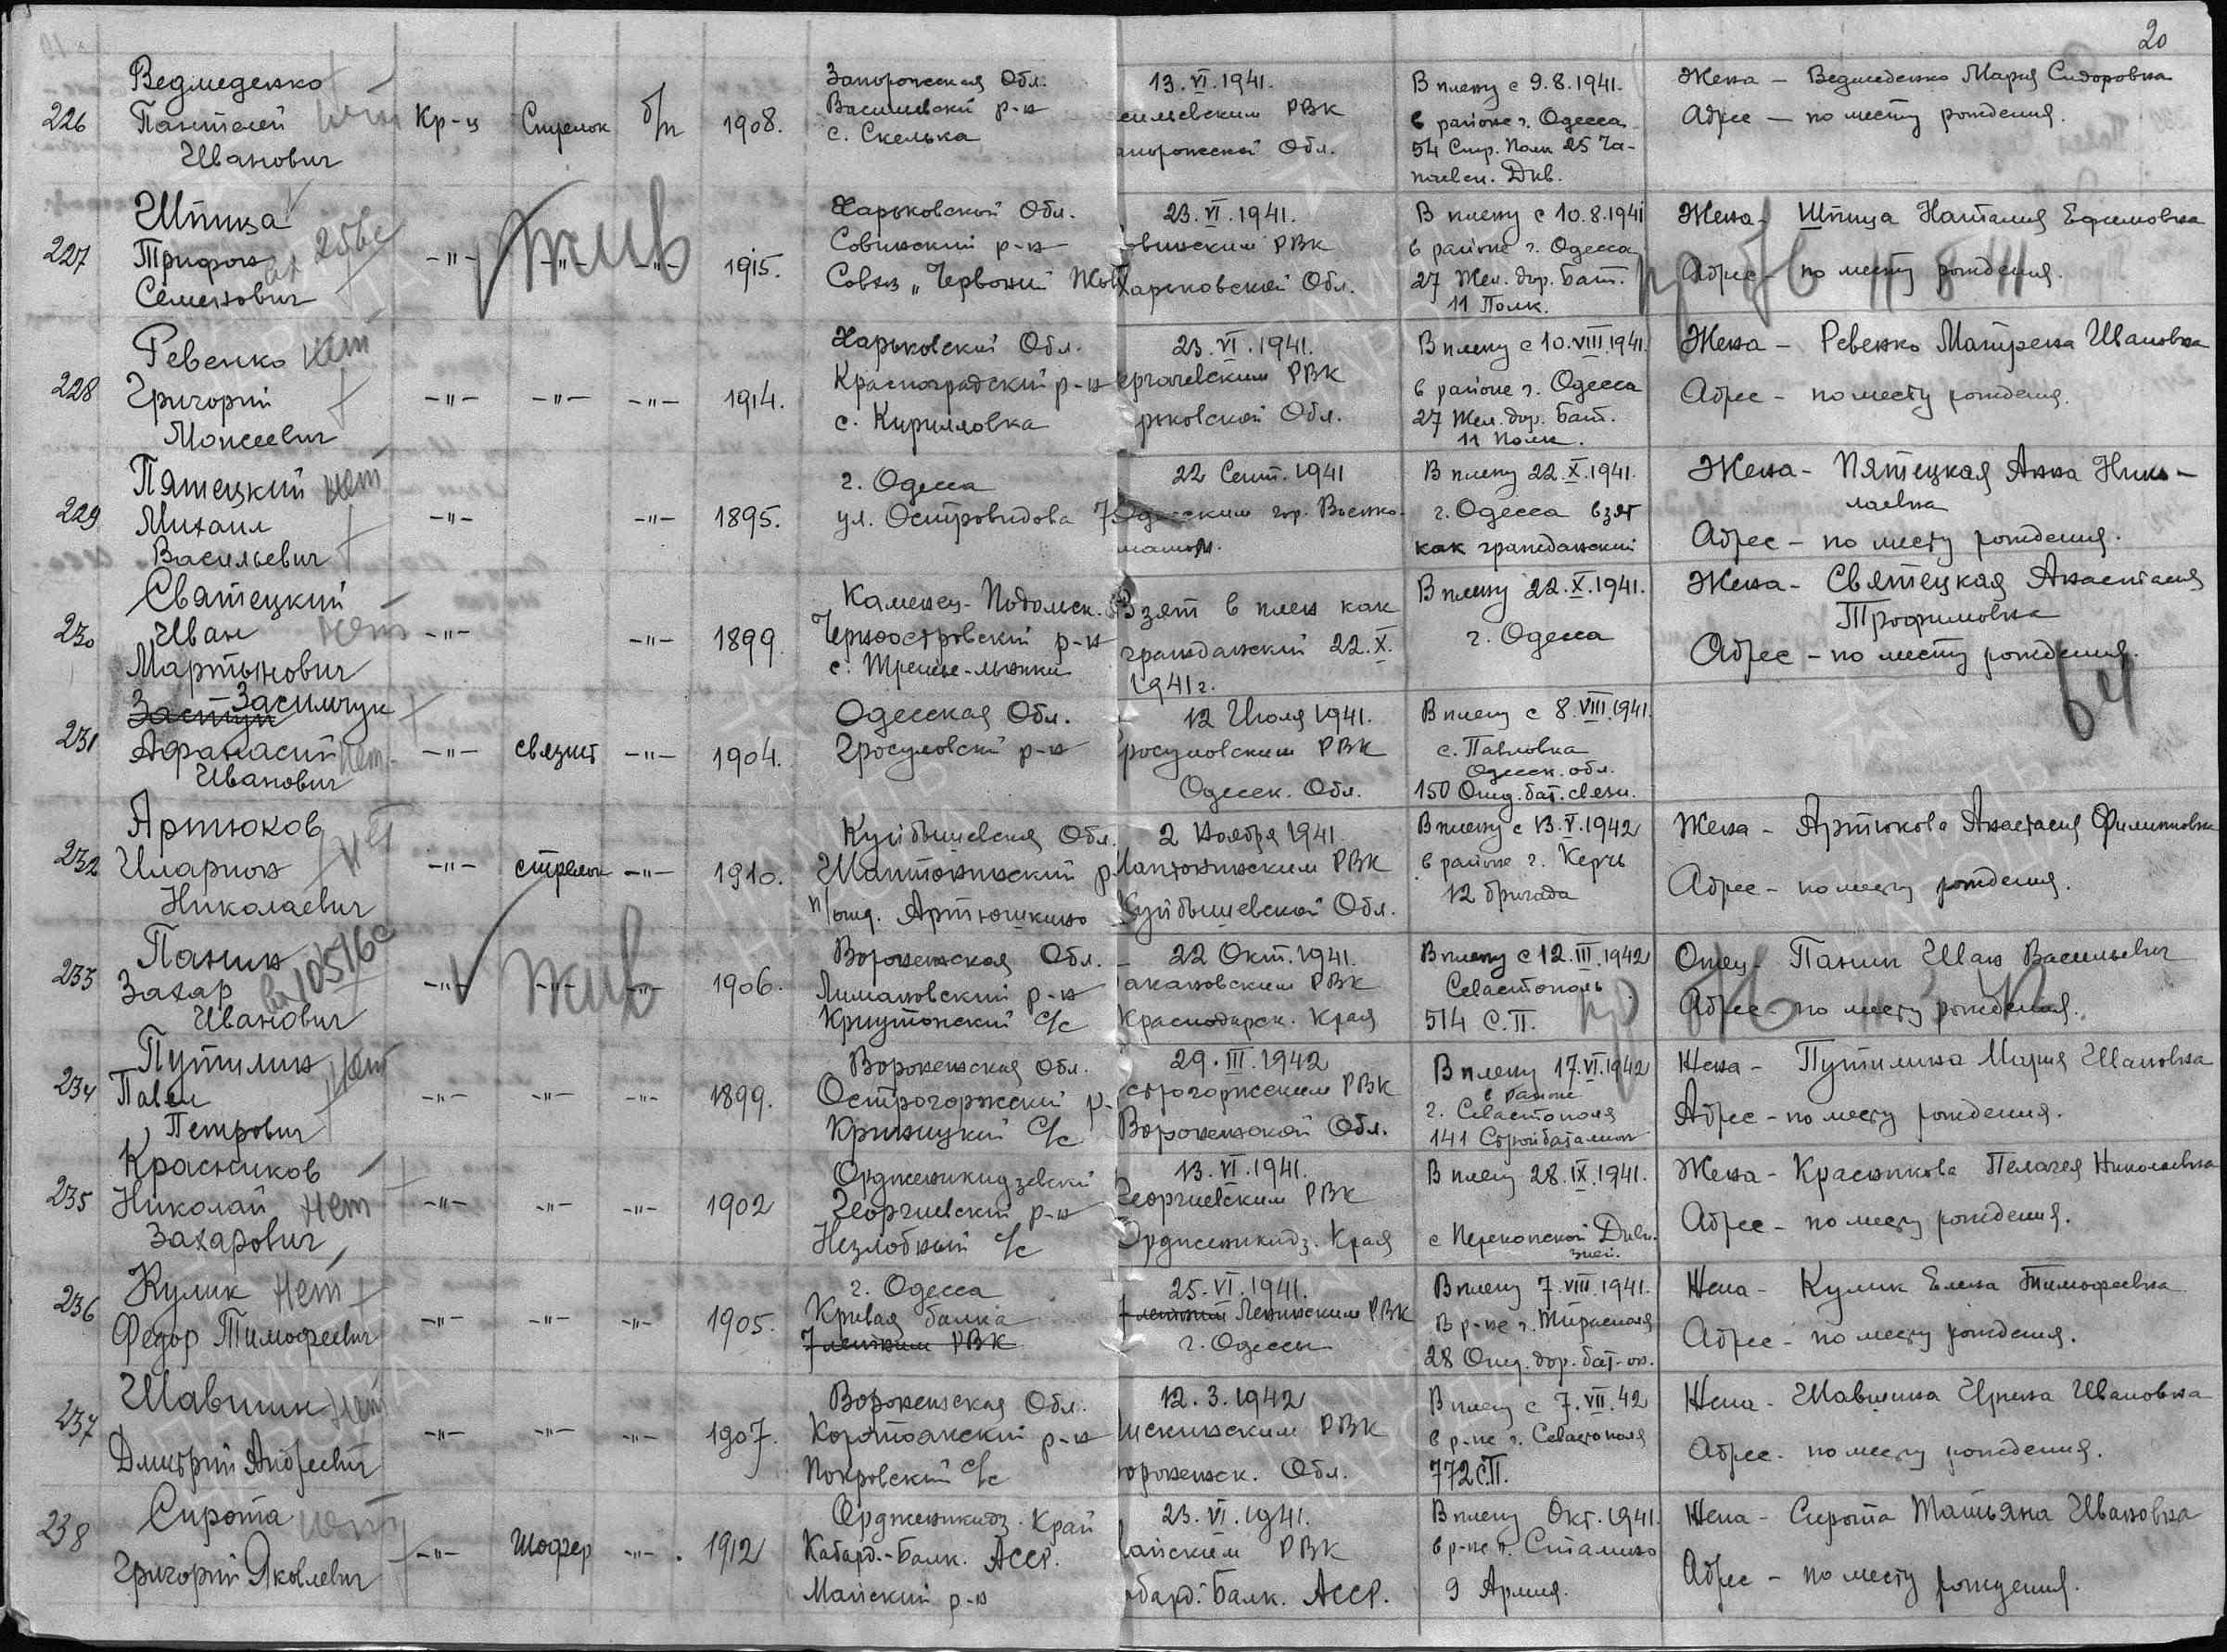 20
226
Ведмеденко
Пантелей
Иванович
Кр-ц
Стрелок
б/п
1908.
Запорожская Обл.
Василевский р-н
с. Скелька
13.VI.1941.
силевским РВК
апорожской Обл.
В плену с 9.8.1941.
в районе г. Одесса
54 Стр. Полк 25 Ча-
паевск. Див.
Жена – Ведмеденко Мария Сидоровна
Адрес – по месту рождения.
227
Шпица
Трифон
Семенович
256с
-"-
-"-
-"-
жив
1915.
Харьковской Обл.
Совинский р-н
Совхз „Червоний
23.VI.1941.
овинским РВК
Харьковской Обл.
В плену с 10.8.1941
в районе г. Одесса
27 Жел. дор. Бат.
11 Полк.
Жена – Шпица Наталия Ефимовна
Адрес – по месту рождения.
228
Ревенко нет
Григорий
Моисеевич
-"-
-"-
-"-
1914.
Харьковский Обл.
Красноградский р-н
с. Кирилловка
23.VI.1941.
ергачевским РВК
рьковской Обл.
В плену с 10.VIII.1941.
в районе г. Одесса
27 Жел. дор. Бат.
11 Полк.
Жена – Ревенко Матрена Ивановна
Адрес – по месту рождения.
229
Пятецкий нет
Михаил
Васильевич
-"-
-"-
1895.
г. Одесса
ул. Островидова 7
22 Сент. 1941
Одесским гор. Военко-
матом.
В плену 22.X.1941.
г. Одесса взят
как гражданский
Жена – Пятецкая Анна Нико-
лаевна
Адрес – по месту рождения.
230
Святецкий
Иван нет
Мартынович
-"-
-"-
1899.
Каменец-Подольск.
Черноостровский р-н
с.
Взят в плен как
гражданский 22.X.
1941 г.
В плену 22.X.1941.
г. Одесса
Жена – Святецкая Анастасия
Трофимовна
Адрес – по месту рождения.
64
231
Засимчук
Застун
Афанасий нет
Иванович
-"-
связист
-"-
1904.
Одесская Обл.
Гросуловский р-н
12 Июля 1941.
росуловским РВК
Одесск. Обл.
В плену с 8.VIII.1941.
с. Павловка
Одесск. обл.
150 Отд. бат. связи.
232
Артюков
Иларион нет
Николаевич
-"-
стрелок
-"-
1910.
Куйбышевская Обл.
Шантонинский р-
п/отд. Артюшкино
2 Ноября 1941.
антонинским РВК
Куйбышевской Обл.
В плену с 13.V.1942
в районе г. Керчь
12 бригада
Жена – Артюкова Анастасия Филипповна
Адрес – по месту рождения.
233
Панин
Захар
Иванович
вх 10516с
-"-
-"-
-"-
жив
1906.
Воронежская Обл.
Лимановский р-н
Криутонский с/с
22 Окт. 1941.
акановским РВК
Краснодарск. Края
В плену с 12.III.1942
Севастополь
514 С.П.
Отец – Панин Иван Васильевич
Адрес – по месту рождения.
234
Путилин нет
Павел
Петрович
-"-
-"-
-"-
1899.
Воронежская Обл.
Острогоржский р-
Криницкий с/с
29.III.1942
строгоржским РВК
Воронежской Обл.
В плену 17.VI.1942
в районе
г. Севастополя
141 Стройбаталион
Жена – Путилина Мария Ивановна
Адрес – по месту рождения.
235
Красников
Николай нет
Захарович
-"-
-"-
-"-
1902
Орджоникидзевский
Георгиевский р-н
Незлобный с/с
13.VI.1941.
Георгиевским РВК
Орджоникидз. Края
В плену 28.IX.1941.
с Перекопской Диви-
зией.
Жена – Красникова Пелагея Николаевна
Адрес – по месту рождения.
236
Кулик нет
Федор Тимофеевич
-"-
-"-
-"-
1905.
г. Одесса
Кривая балка
РВК
25.VI.1941.
Ленинским РВК
г. Одессы
В плену 7.VIII.1941.
В р-не г. Тирасполя
28 Отд. дор. бат-он.
Жена – Кулик Елена Тимофеевна
Адрес – по месту рождения.
237
Шавшин нет
Дмитрий Андреевич
-"-
-"-
-"-
1907.
Воронежская Обл.
Коротоакский р-н
Покровский с/с
12.3.1942
Лискинским РВК
оронежск. Обл.
В плену с 7.VII.42
в р-не г. Севастополя
772 С.П.
Жена – Шавшина Ирина Ивановна
Адрес – по месту рождения.
238
Сирота нет
Григорий Яковлевич
-"-
Шофер
-"-
1912
Орджоникидз. Край
Кабард.-Балк. АССР.
Майский р-н
23.VI.1941.
айским РВК
абард. Балк. АССР.
В плену Окт. 1941.
в р-не г. Сталино
9 Армия.
Жена – Сирота Татьяна Ивановна
Адрес – по месту рождения.